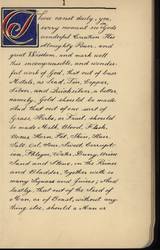 1
Thou canst daily, yea,
every moment see God's
wonderful Creation His
Almighty Power, and
great Wisdom, and mark well
this incomprehensible, and wonder-
ful work of God, that out of base
Metals, as Lead, Tin, Copper,
Silver, and Quicksilver, a better,
namely, Gold should be made
And that out of one sort of
Grass, Herbs, or Fruit, should
be made Milk, Blood, Flesh,
Bones, Horn, Fat, Skin, Hair,
Salt, Oil, Hair, Sweat, Corrupt-
ion, Phlegm, Water, Dung, Urine
Sand and Stone, in the Reins
and Bladder, together with so
many Figures and Juices; &
lastly, that out of the Seed of
Man, or of Beast, without any
thing else, should a Man or